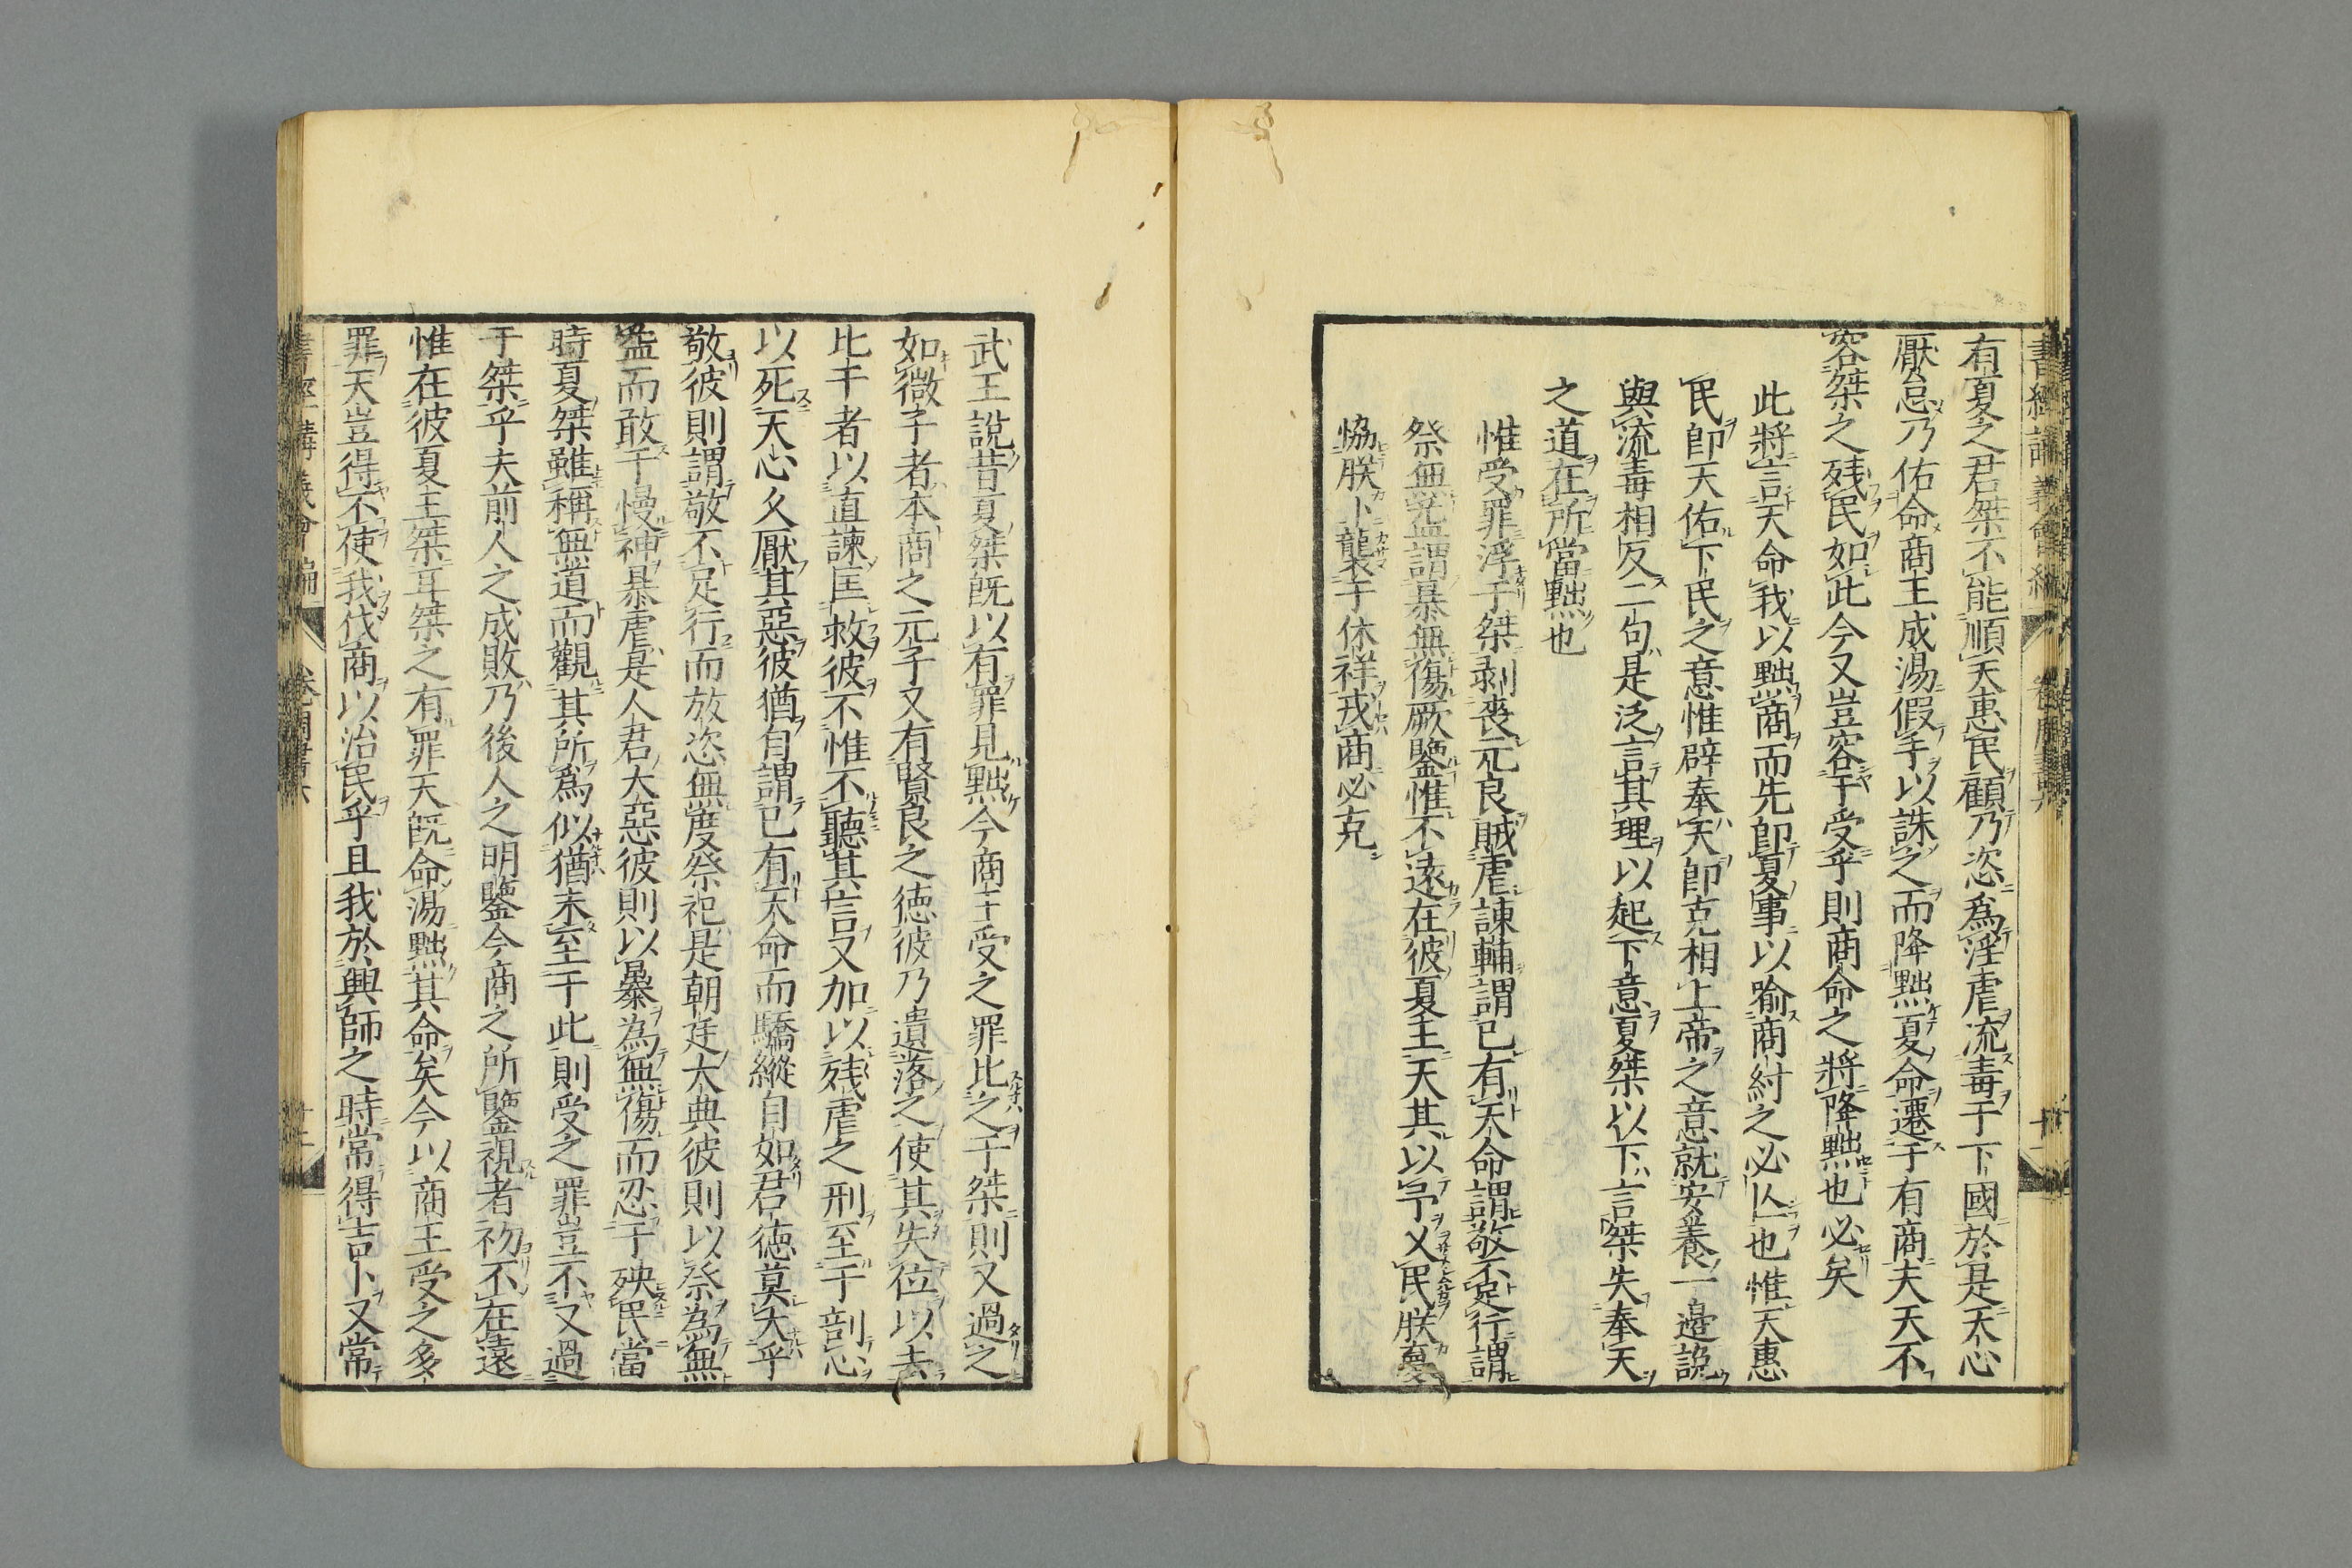 有夏之君桀不能順天惠民顧乃恣爲淫虐流毒于下國於是天心
厭怠乃佑命商王成湯假手以誅之而降黜夏命遷于有商夫天不
容桀之残民如此今又豈容于受乎則商命之將降黜也必矣
此將言天命我以黜商而先即夏事以喻商紂之必亾也惟天惠
民即天佑下民之意惟辟奉天即克相上帝之意就安養一邉説
與流毒相反二句是泛言其理以起下意夏桀以下言桀失奉天
之道在所當黜也
惟受罪浮于桀剥喪元良賊虐諫輔謂已有天命謂敬不足行謂
祭無益謂暴無傷厥鑒惟不遠在彼夏王天其以予乂民朕夢
協朕卜襲于休祥戎商必克
武王說昔夏桀既以有罪見黜今商王受之罪比之于桀則又過之
如微子者本商之元子又有賢良之德彼乃遺落之使其失位以去
比干者以直諫匡救彼不惟不聽其言又加以残虐之刑至于剖心
以死天心久厭其惡彼猶自謂已有天命而驕縱自如君德莫大乎
敬彼則謂敬不足行而放恣無度祭祀是朝廷大典彼則以祭為無
益而敢于慢神暴虐是人君大惡彼則以暴為無傷而忍于殃民當
時夏桀雖稱無道而觀其所爲似猶未至于此則受之罪豈不又過
于桀乎夫前人之成敗乃後人之明鑒今商之所鑒視者初不在遠
惟在彼夏王桀耳桀之有罪天既命湯黜其命矣今以商王受之多
罪天豈得不使我伐商以治民乎且我於興師之時常得吉卜又常